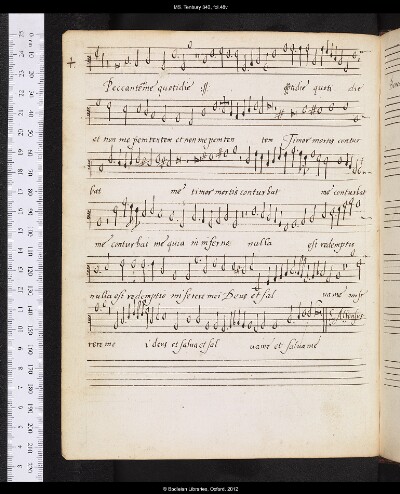 MS. Tenbury 340, fol.
Peccantem me quotidie :||: quotidie quoti die
et non me penitentem et non me peniten tem Timor mortis contur
bat me timor mortis conturbat me conturbat
me conturbat me quia in inferno nulla est redemptio
nulla est redemptio miserere mei Deus et sal va me mise
rere me i deus et salva et sal va me et salva me
© Bodleian Libraries, Oxford, 2012